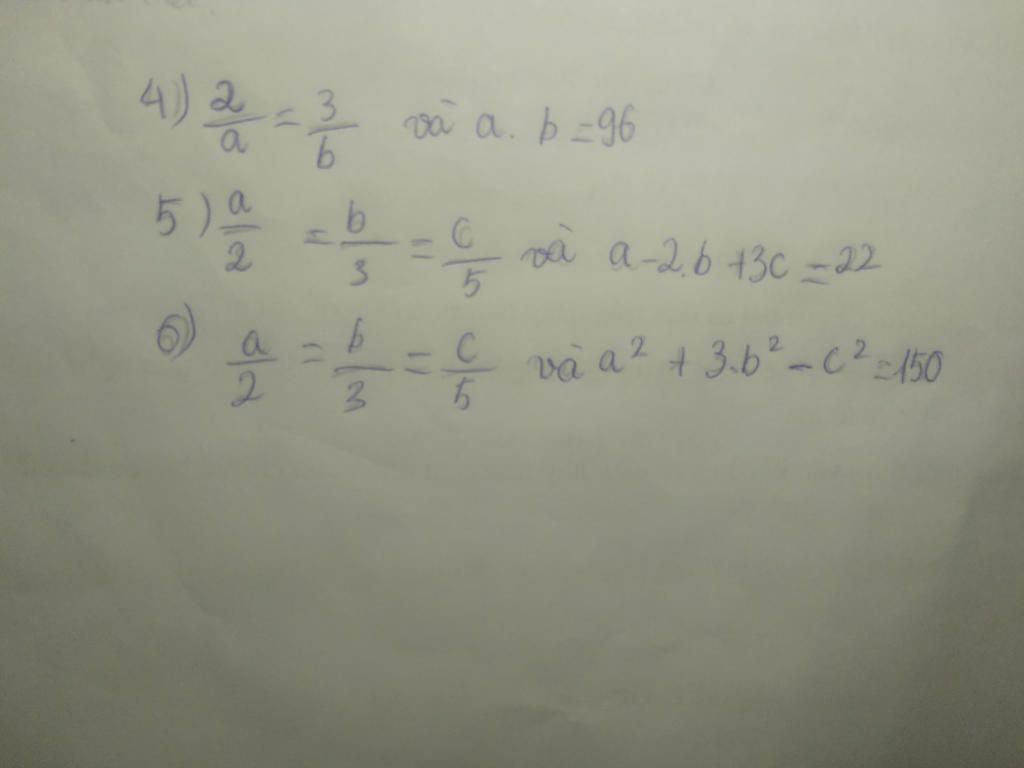 4) 2/a = 3/b và a. b = 96
5) a/2 = b/3 = c/5 và a - 2.b + 3c = 22
6) a/2 = b/3 = c/5 và a² + 3.b² - c² = 150